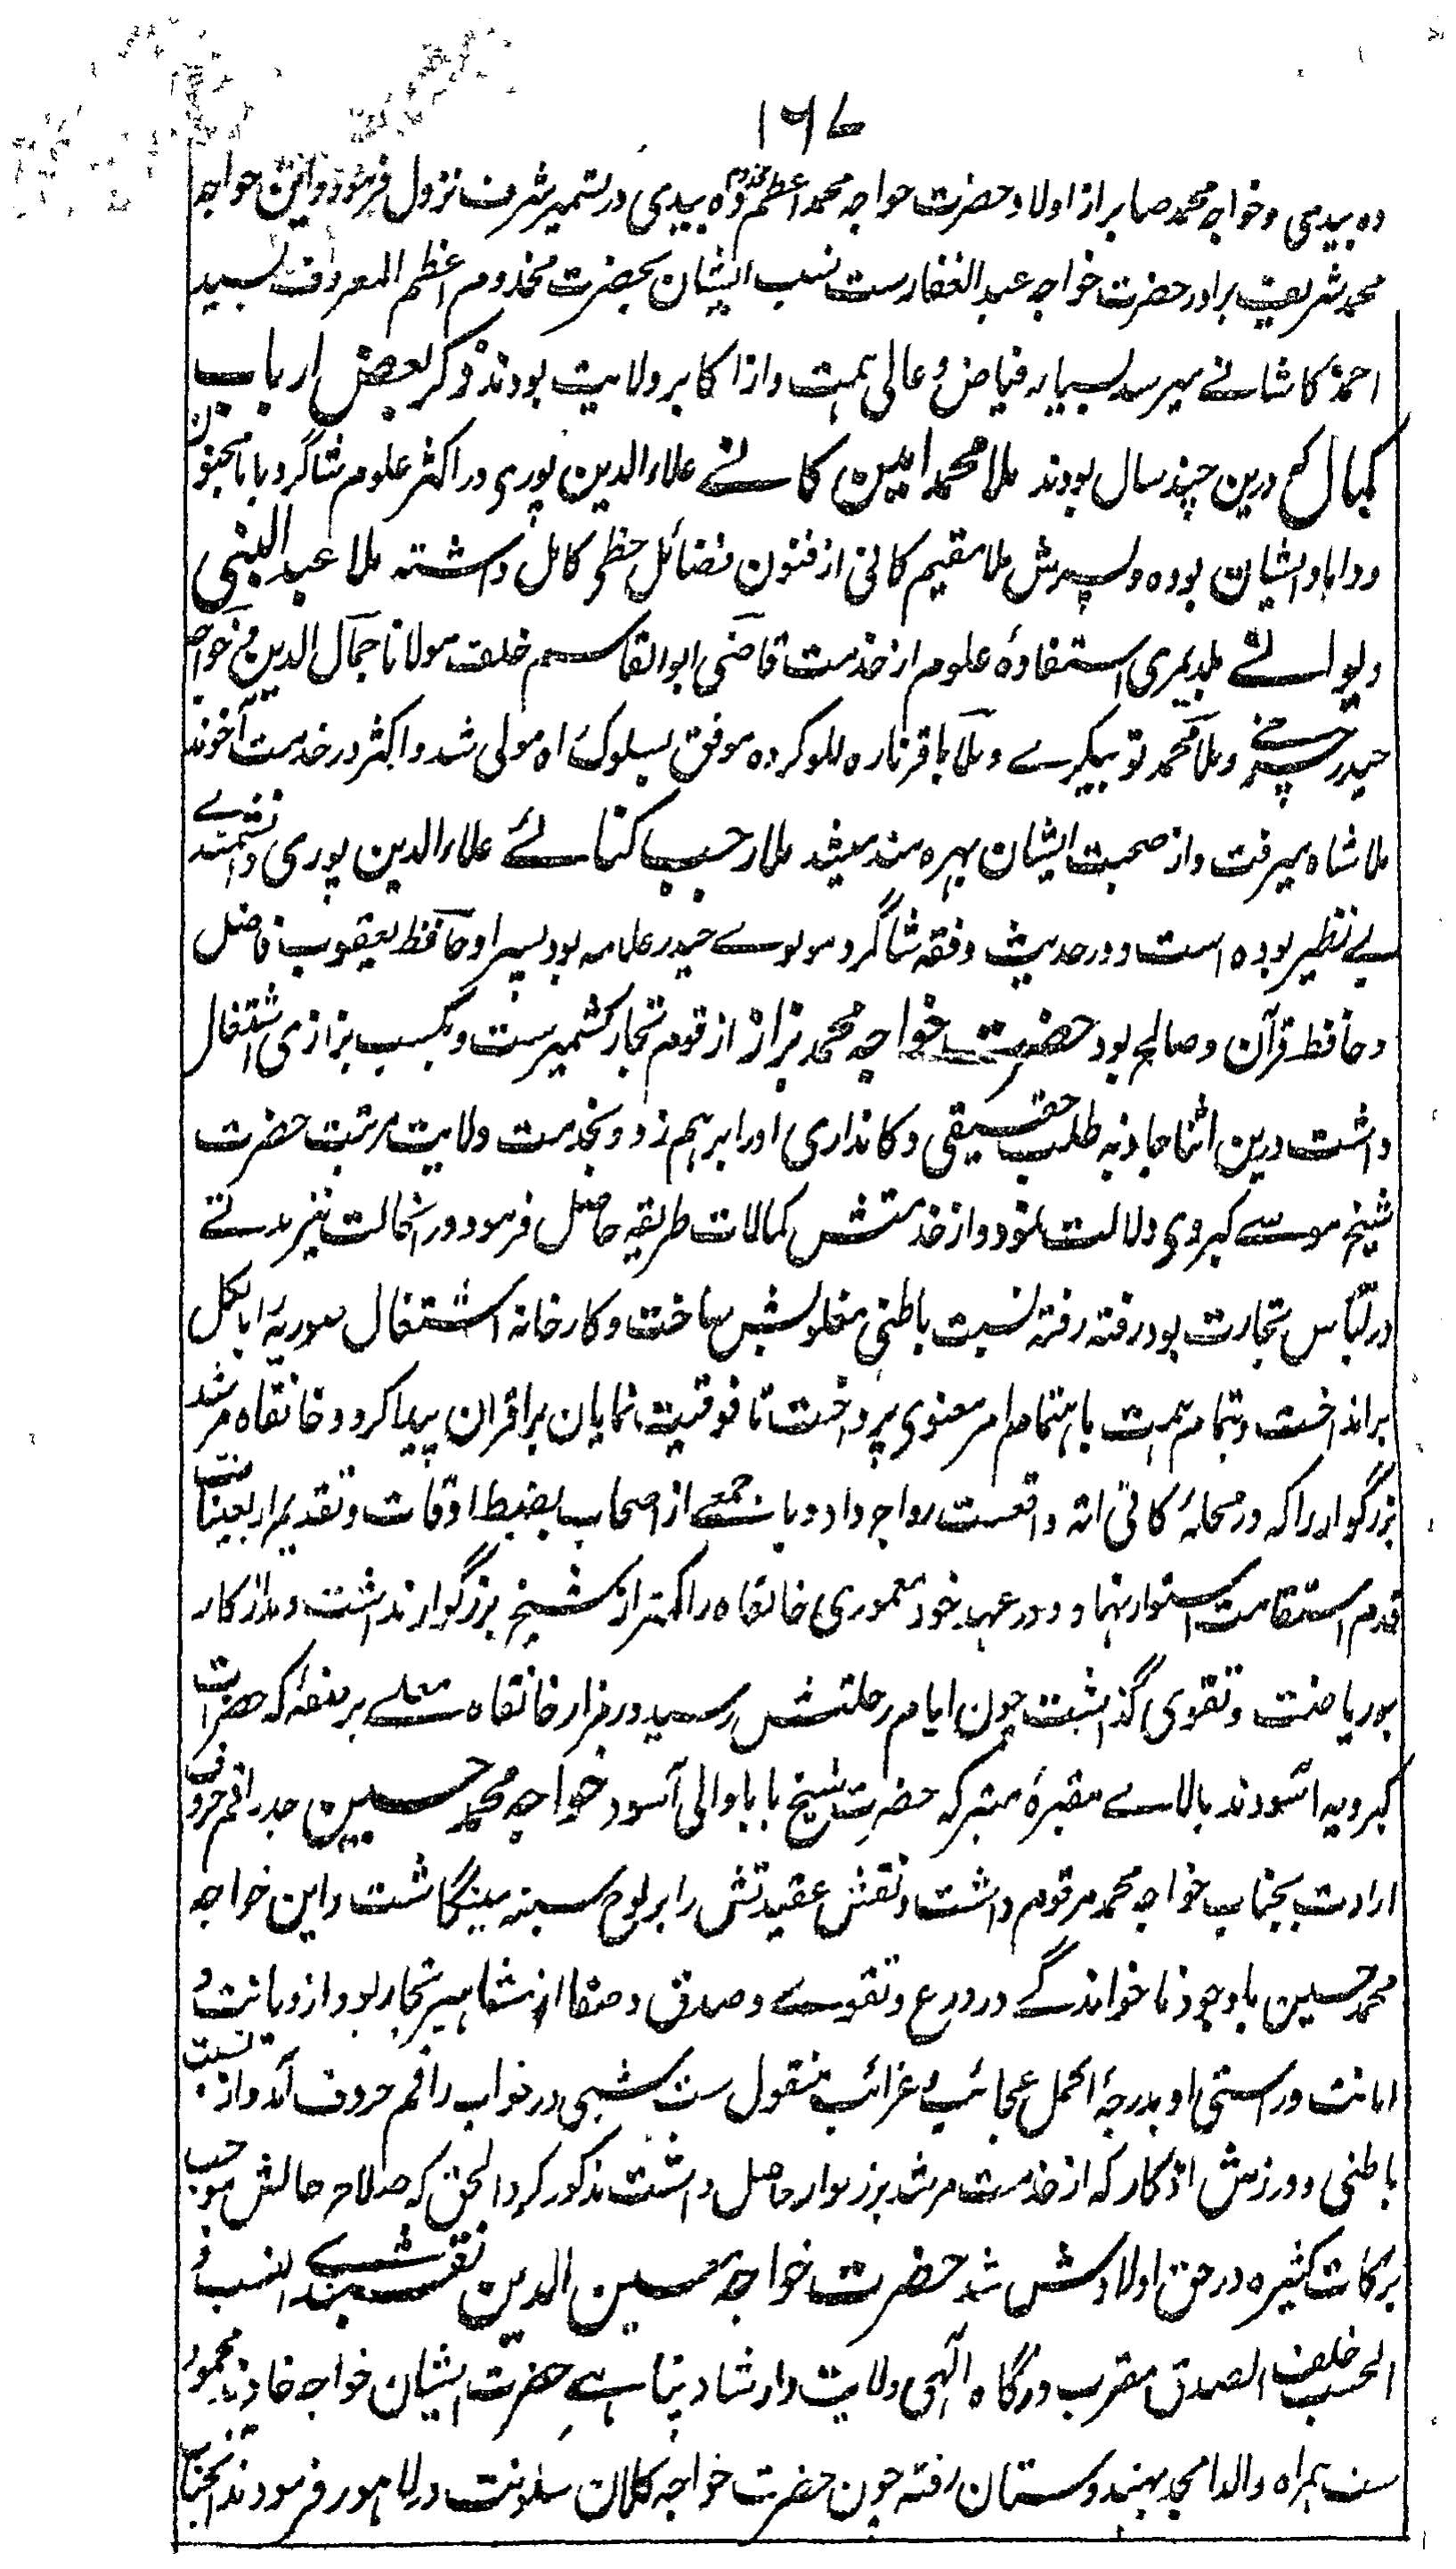 ۱۶۷
ده بیدی و خواجه محمد صابر از اولاد حضرت خواجه محمد اعظم ده بیدی در کشمیر شرف نزول فرمود و این خواجه
محمد شریف برادر حضرت خواجه عبد الغفارست نسب ایشان بحضرت مخدوم اعظم المعروف بسید
احمد کاشانے میرسد بسیار فیاض و عالی همت و از اکابر ولایت بودند ذکر بعض ارباب
کمال که درین چند سال بودند ملا محمد امین کانے علاء الدین پوری در اکثر علوم شاگرد بابا مجنون
و داماد ایشان بوده و پسرش ملا مقیم کانی از فنون فضائل حظی کامل داشته ملا عبد النبی
بلدیمری استفادۀ علوم از خدمت قاضی ابو القاسم خلف مولانا جمال الدین و خواجه
حیدر چرخے و ملا محمد توپیگرے و ملا باقر ناره للو کرده موفق بسلوک راه مولی شد و اکثر در خدمت آخوند
ملا شاه میرفت و از صحبت ایشان بهره مند میشد ملا رجب کنائے علاء الدین پوری دانشمندے
بے نظیر بوده است و در حدیث و فقه شاگرد مولوے حیدر علامه بود پسر او حافظ یعقوب فاضل
و حافظ قرآن و صالح بود حضرت خواجه محمد بزاز از قوم تجار کشمیرست و بکسب بزازی اشتغال
داشت درین اثنا جاذبه طلب حقیقی دکانداری او را برهم زد و بخدمت ولایت مرتبت حضرت
شیخ موسے کبروی دلالت نمود و از خدمتش کمالات طریقه حاصل فرمود در آنحالت نیز مدتے
در لباس تجارت بود رفته رفته نسبت باطنی مغلوبش ساخت و کارخانه اشتغال صوریه را بالکل
برانداخت و بتمام همت باهتمام امر معنوی پرداخت تا فوقیت نمایان بر اقران پیدا کرد و خانقاه مرشد
بزرگوار را که در محلۀ کانی اته واقعست رواج داد و با جمعے از اصحاب بضبط اوقات و تقدیم اربعینات
قدم استقامت استوار نهاد و در عهد خود معموری خانقاه را کمتر از شیخ بزرگوار نداشت و مدار کار
بر ریاضت و تقوی گذاشت چون ایام رحلتش رسید در مزار خانقاه معلے بر صفۀ که حضرات
کبرویه آسودند بالاے مقبرۀ متبرکه حضرت شیخ بابا والی آسود خواجه محمد حسین جد راقم حروف
ارادت بجناب خواجه محمد مرقوم داشت و نقش عقیدتش را بر لوح سینه مینگاشت و این خواجه
محمد حسین باوجود ناخواندگے در ورع و تقوے و صدق و صفا از مشاهیر تجار بود از دیانت و
امانت و راستی او بدرجۀ اکمل عجائب و غرائب منقول ست شبی در خواب راقم حروف آمد و از نسبت
باطنی و ورزش اذکار که از خدمت مرشد بزرگوار حاصل داشت مذکور کرد الحق که صلاح حالش موجب
برکات کثیره در حق اولادش شد حضرت خواجه معین الدین نقشبندے النسب و
الحسب خلف الصدق مقرب درگاه الهی ولایت و ارشاد پناهے حضرت ایشان خواجه خاوند محمود
ست همراه والد امجد بهندوستان رفته چون حضرت خواجه کلان سکونت در لاهور فرمودند آنجناب